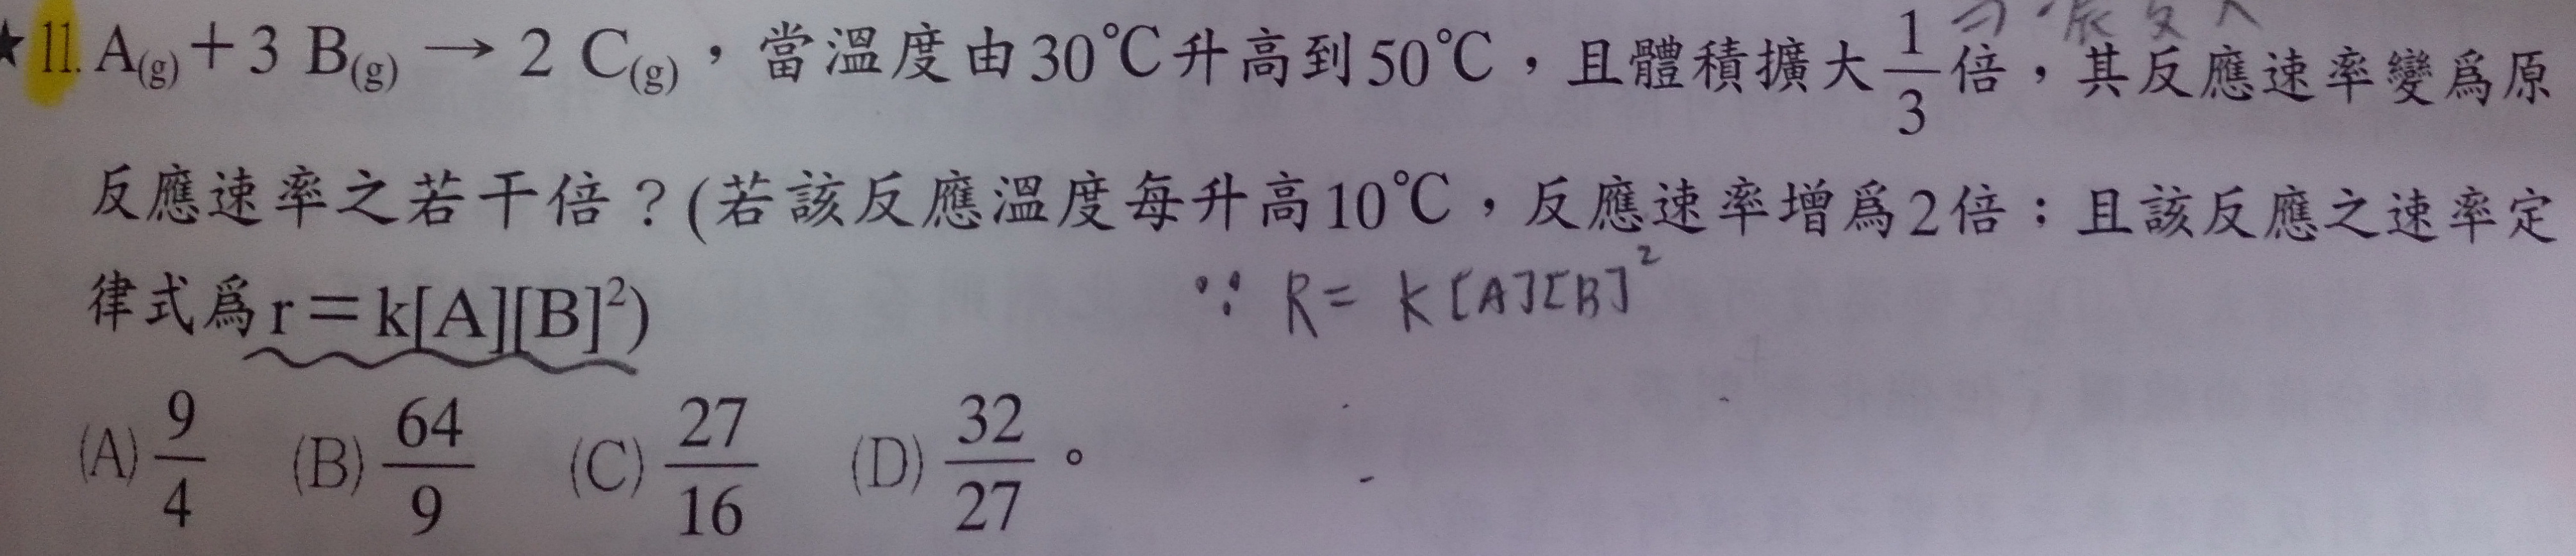 ★11. A(g)+3 B(g) → 2 C(g),當溫度由30℃升高到50℃,且體積擴大1/3倍,其反應速率變爲原
反應速率之若干倍?(若該反應溫度每升高10℃,反應速率增爲2倍;且該反應之速率定
律式爲r=k[A][B]²)
∵ R= k[A][B]²
(A) 9/4 (B) 64/9 (C) 27/16 (D) 32/27。